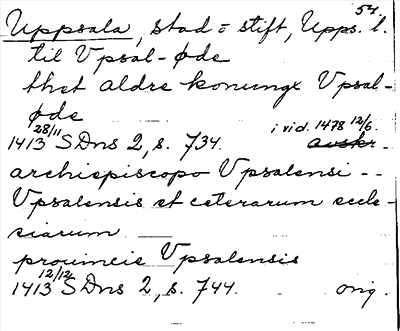 54.
Uppsala, stad o stift, Upps. l.
til Vpsal-øde
thet aldre konungx Vpsal-
øde
1413 28/11 SDns 2, s. 734. i vid. 1478 12/6.
archiepiscopo Vpsalensi - -
Vpsalensis et ceterarum eccle-
siarum ——
prouincie Vpsalensis
1413 12/12 SDns 2, s. 744. orig.